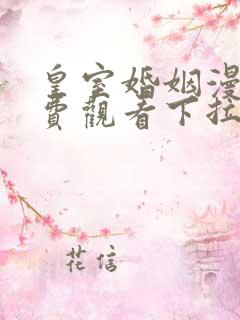 皇室婚姻漫
費觀看下拉
花信